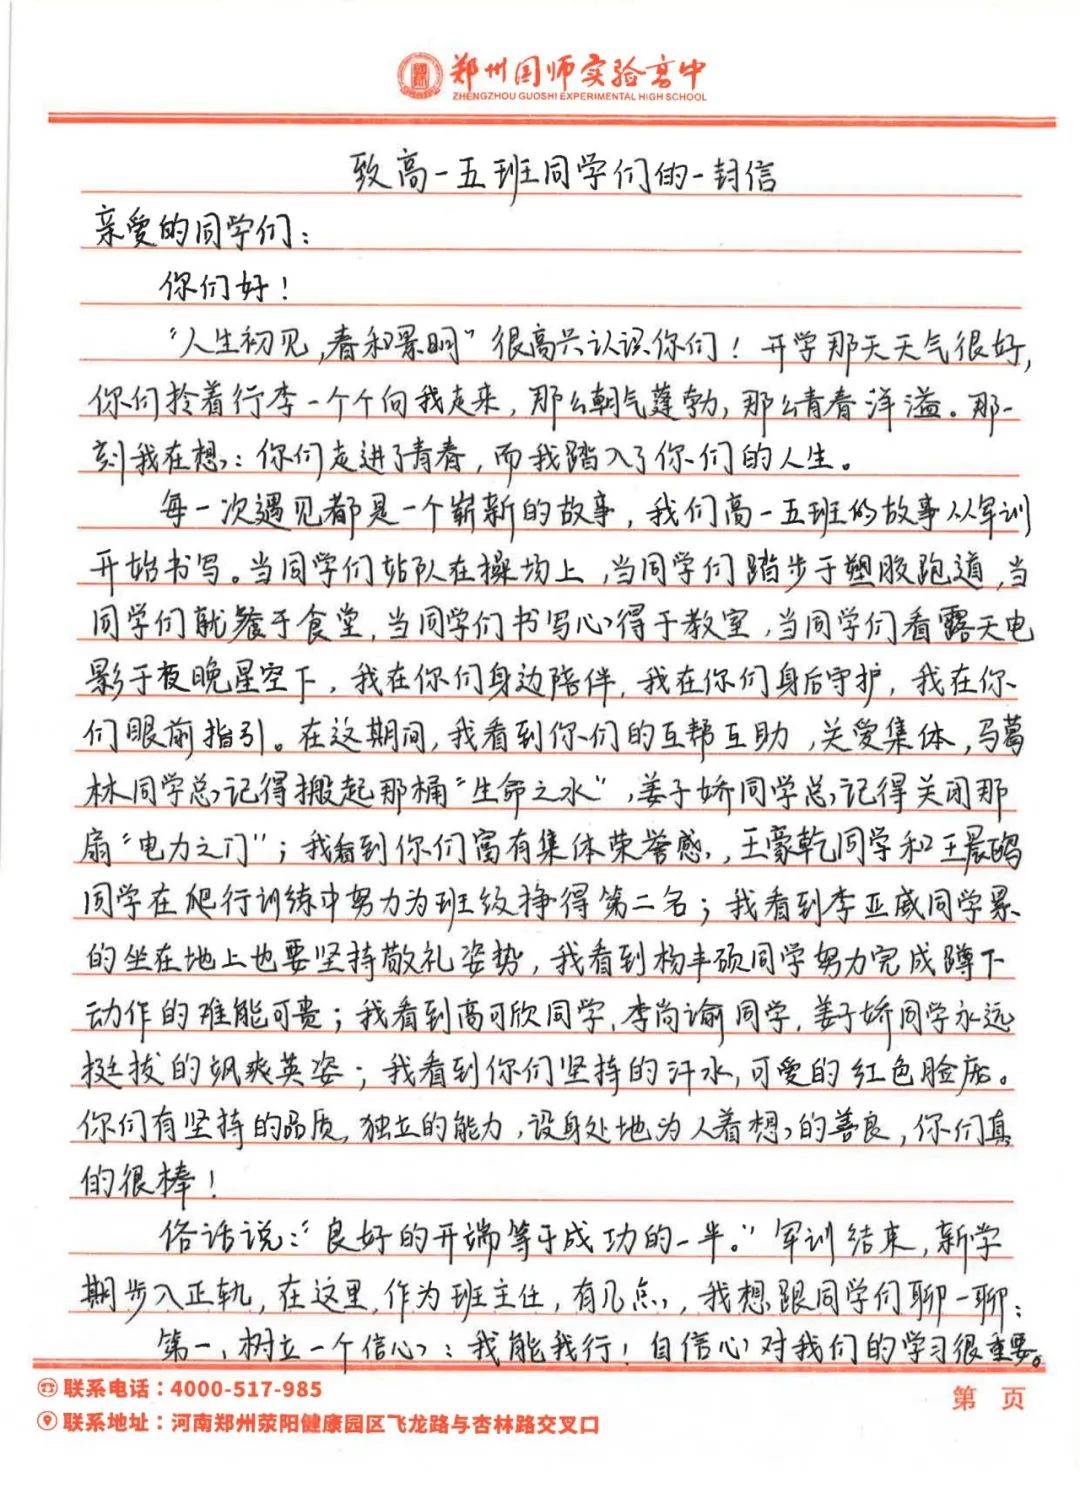 郑州国师实验高中
ZHENGZHOU GUOSHI EXPERIMENTAL HIGH SCHOOL
致高一五班同学们的一封信
亲爱的同学们：
你们好！
“人生初见，春和景明”很高兴认识你们！开学那天天气很好，
你们拎着行李一个个向我走来，那么朝气蓬勃，那么青春洋溢。那一
刻我在想：你们走进了青春，而我踏入了你们的人生。
每一次遇见都是一个崭新的故事，我们高一五班的故事从军训
开始书写。当同学们站队在操场上，当同学们踏步于塑胶跑道，当
同学们就餐于食堂，当同学们书写心得于教室，当同学们看露天电
影于夜晚星空下，我在你们身边陪伴，我在你们身后守护，我在你
们眼前指引。在这期间，我看到你们的互帮互助，关爱集体，马葛
林同学总记得搬起那桶“生命之水”，姜子娇同学总记得关闭那
扇“电力之门”；我看到你们富有集体荣誉感，王豪乾同学和王晨鸥
同学在爬行训练中努力为班级挣得第二名；我看到李亚威同学累
的坐在地上也要坚持敬礼姿势，我看到杨丰硕同学努力完成蹲下
动作的难能可贵；我看到高可欣同学，李尚谕同学，姜子娇同学永远
挺拔的飒爽英姿；我看到你们坚持的汗水，可爱的红色脸庞。
你们有坚持的品质，独立的能力，设身处地为人着想的善良，你们真
的很棒！
俗话说：“良好的开端等于成功的一半。”军训结束，新学
期步入正轨，在这里，作为班主任，有几点，我想跟同学们聊一聊：
第一，树立一个信心：我能我行！自信心对我们的学习很重要。
联系电话：4000-517-985
第 页
联系地址：河南郑州荥阳健康园区飞龙路与杏林路交叉口